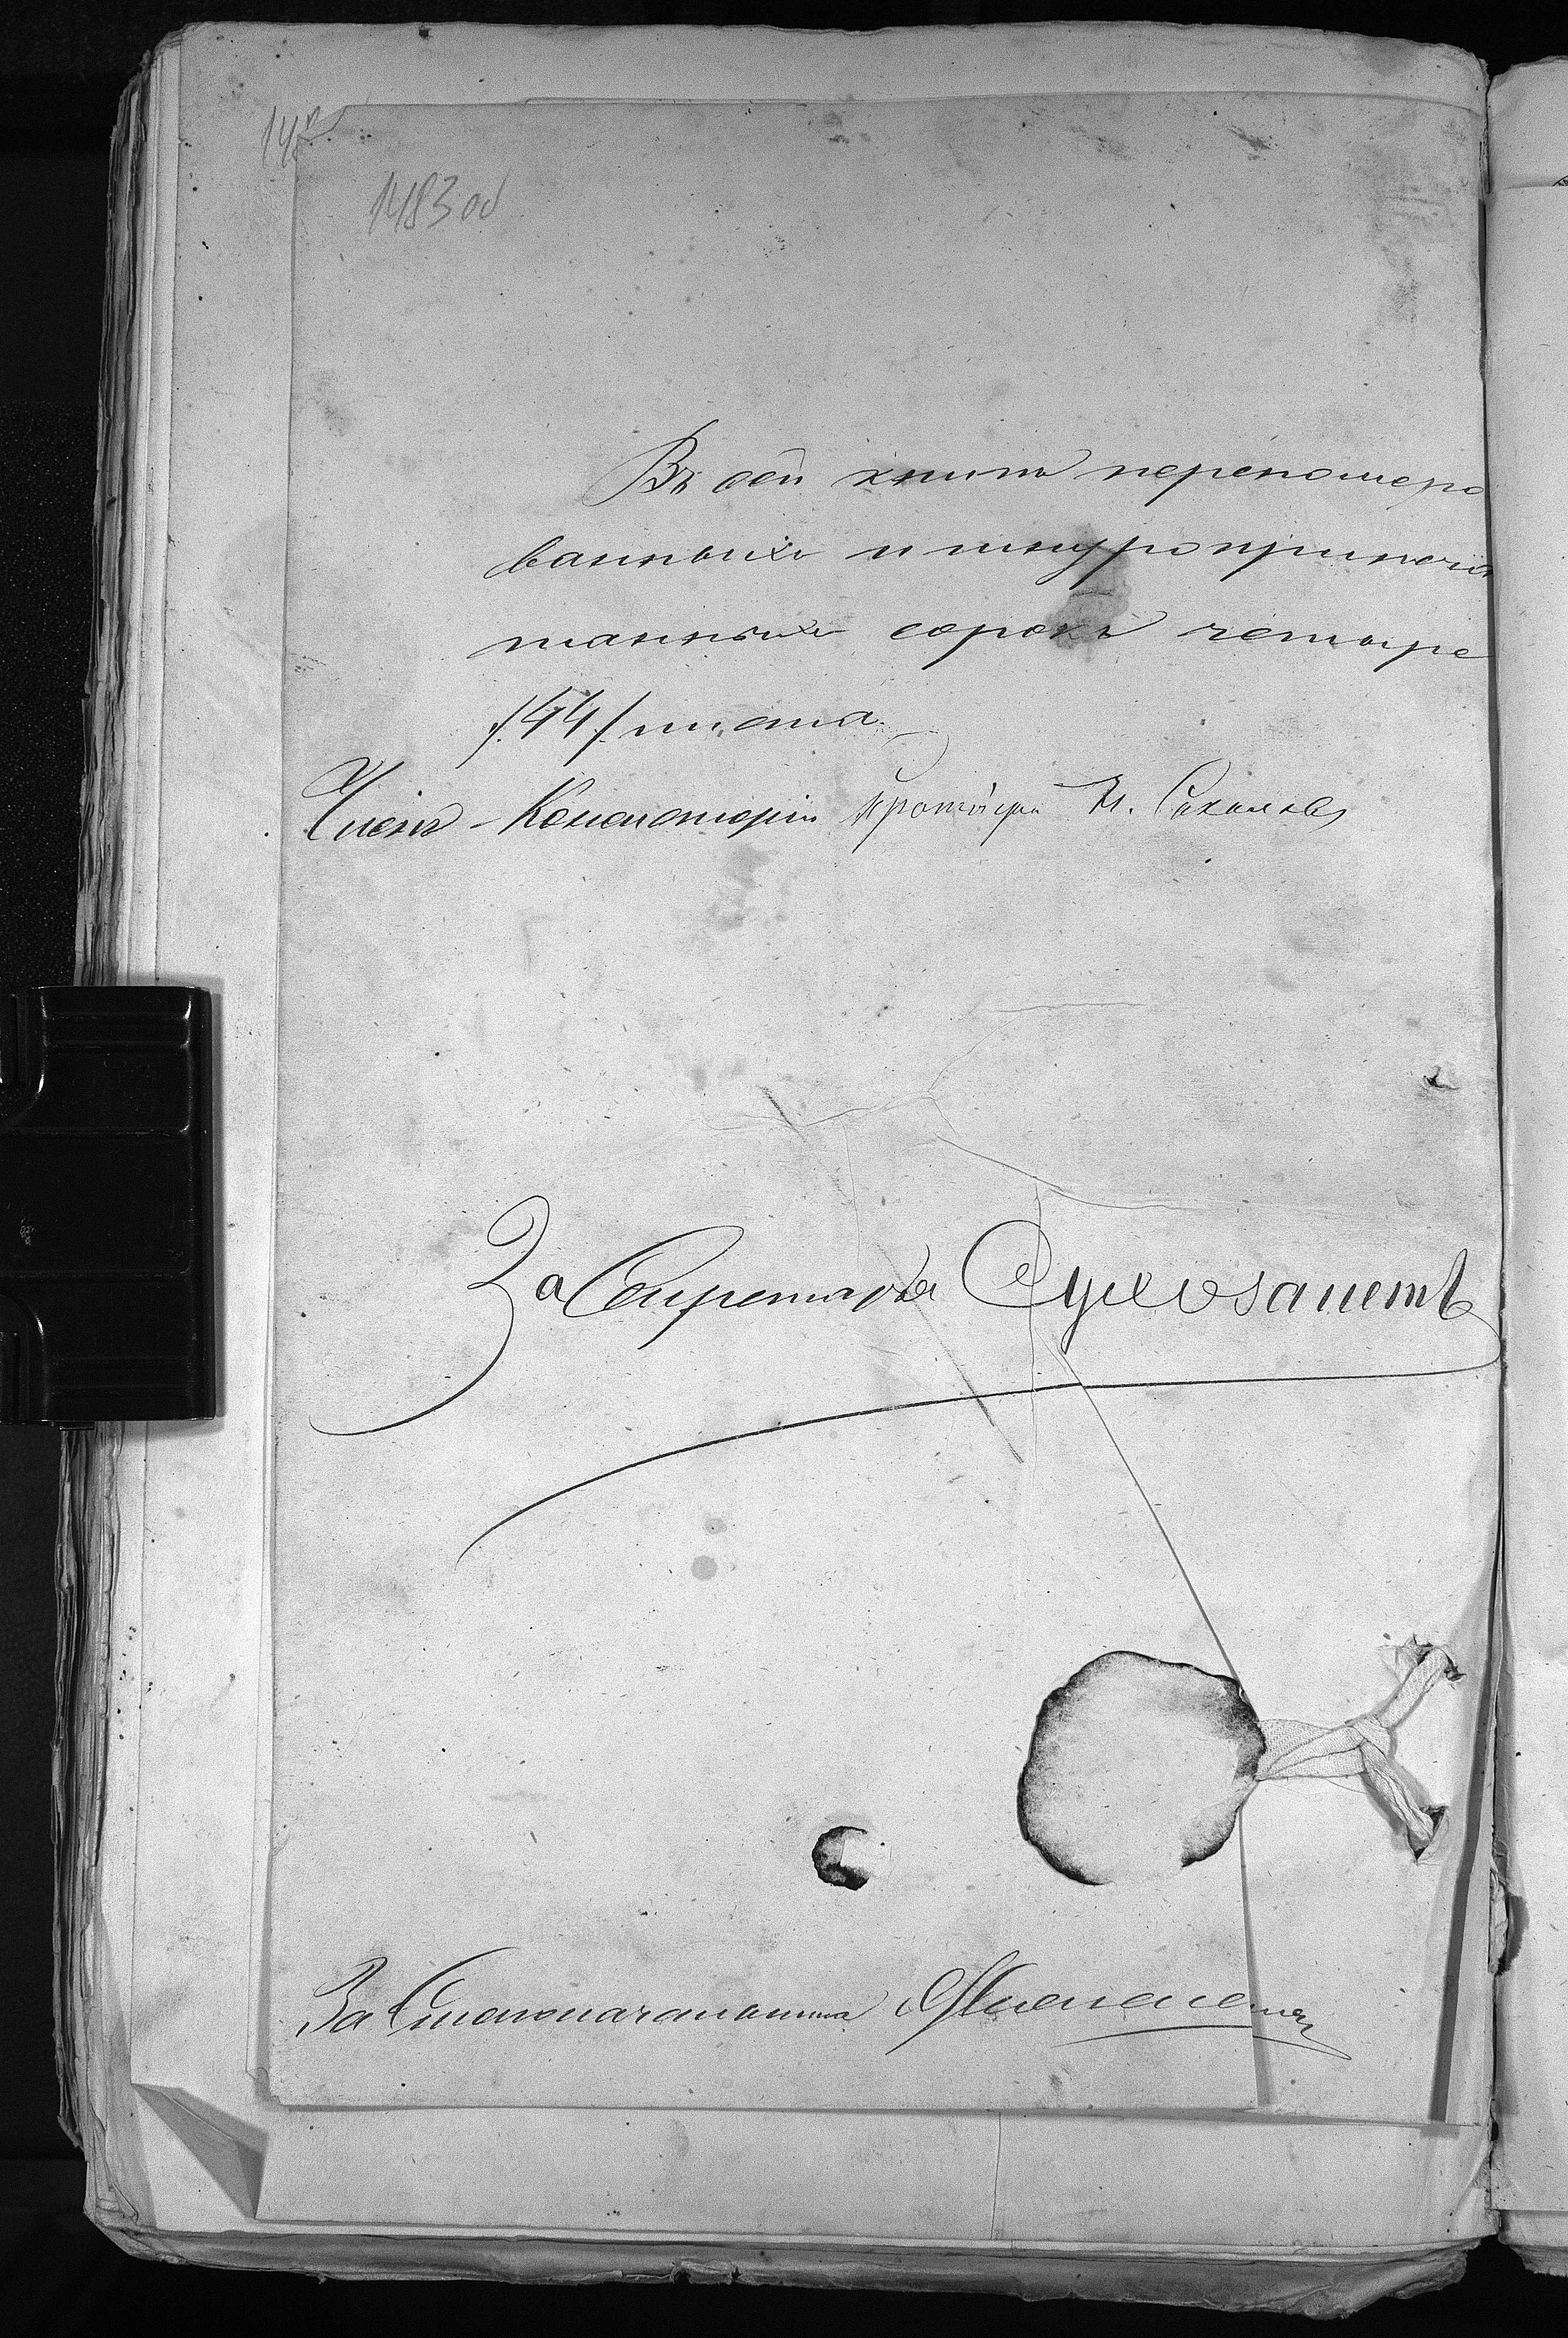 1483 об
Въ сей книгѣ перенумеро
ванныхъ и шнуроприпеча
танныхъ сорокъ четыре
/44/ листа.
Членъ Консисторіи Протоіерей И. Соколовъ
За Секретаря Сухозанетъ
За Столоначальника